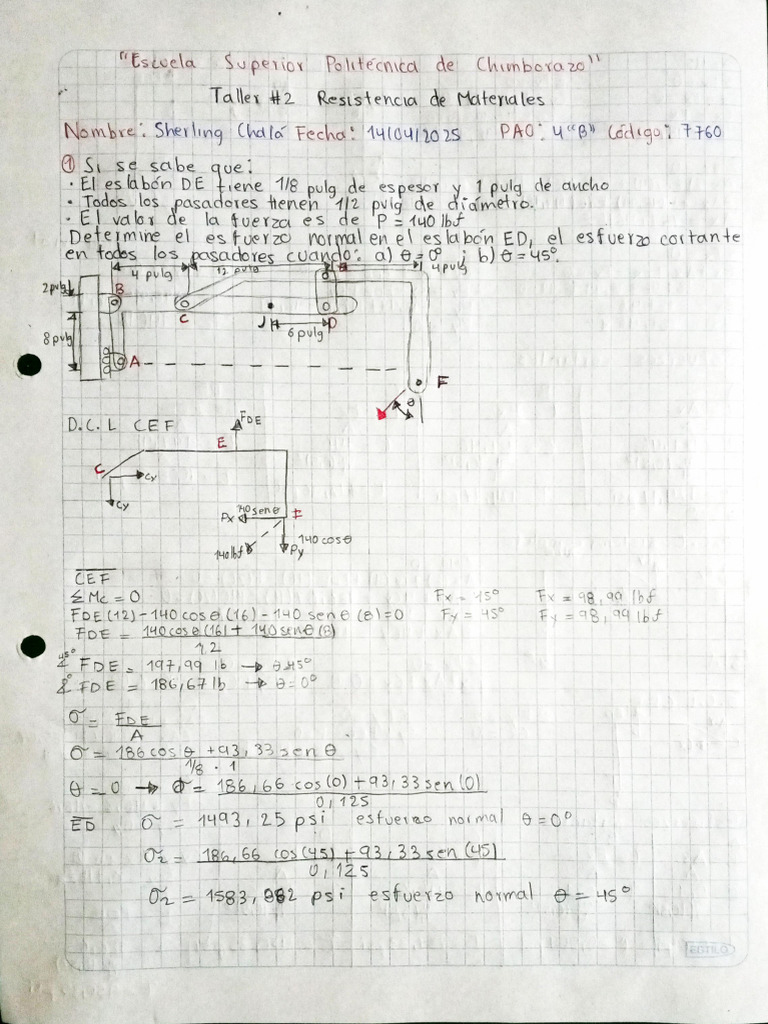 "Escuela Superior Politécnica de Chimborazo"
Taller #2 Resistencia de Materiales
Nombre: Sherling Chalá Fecha: 14/04/2025 PAO: 4 "B" Código: 7760
① Si se sabe que:
• El eslabón DE tiene 1/8 pulg de espesor y 1 pulg de ancho
• Todos los pasadores tienen 1/2 pulg de diámetro.
• El valor de la fuerza es de P = 140 lbf
Determine el esfuerzo normal en el eslabón ED, el esfuerzo cortante
en todos los pasadores cuando: a) θ = 0° ; b) θ = 45°.
4 pulg 12 pulg 4 pulg
2 pulg B
C J D
6 pulg
8 pulg
A
F
θ
D.C.L CEF
FDE
E
C Cx
Cy
Px 140 senθ F
140 cosθ
140 lbf Py
CEF
ΣMc = 0 Fx = 45° Fx = 98,99 lbf
FDE(12) - 140 cosθ (16) - 140 senθ (8) = 0 Fy = 45° Fy = 98,99 lbf
FDE = 140 cosθ (16) + 140 senθ (8)
12
45° FDE = 197,99 lb → θ=45°
0° FDE = 186,67 lb → θ = 0°
σ = FDE
A
σ = 186 cos θ + 93,33 sen θ
1/8 · 1
θ = 0 → σ = 186,66 cos(0) + 93,33 sen(0)
0,125
ED σ = 1493,25 psi esfuerzo normal θ = 0°
σ2 = 186,66 cos(45) + 93,33 sen(45)
0,125
σ2 = 1583,882 psi esfuerzo normal θ = 45°
ESTILO